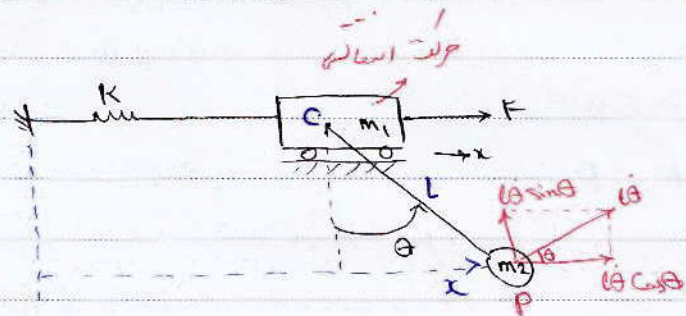 حرکت انتقالی
K
C
m₁
F
→x
L
θ
x
m₂
P
lθ̇ sinθ
lθ̇
θ
lθ̇ Cosθ